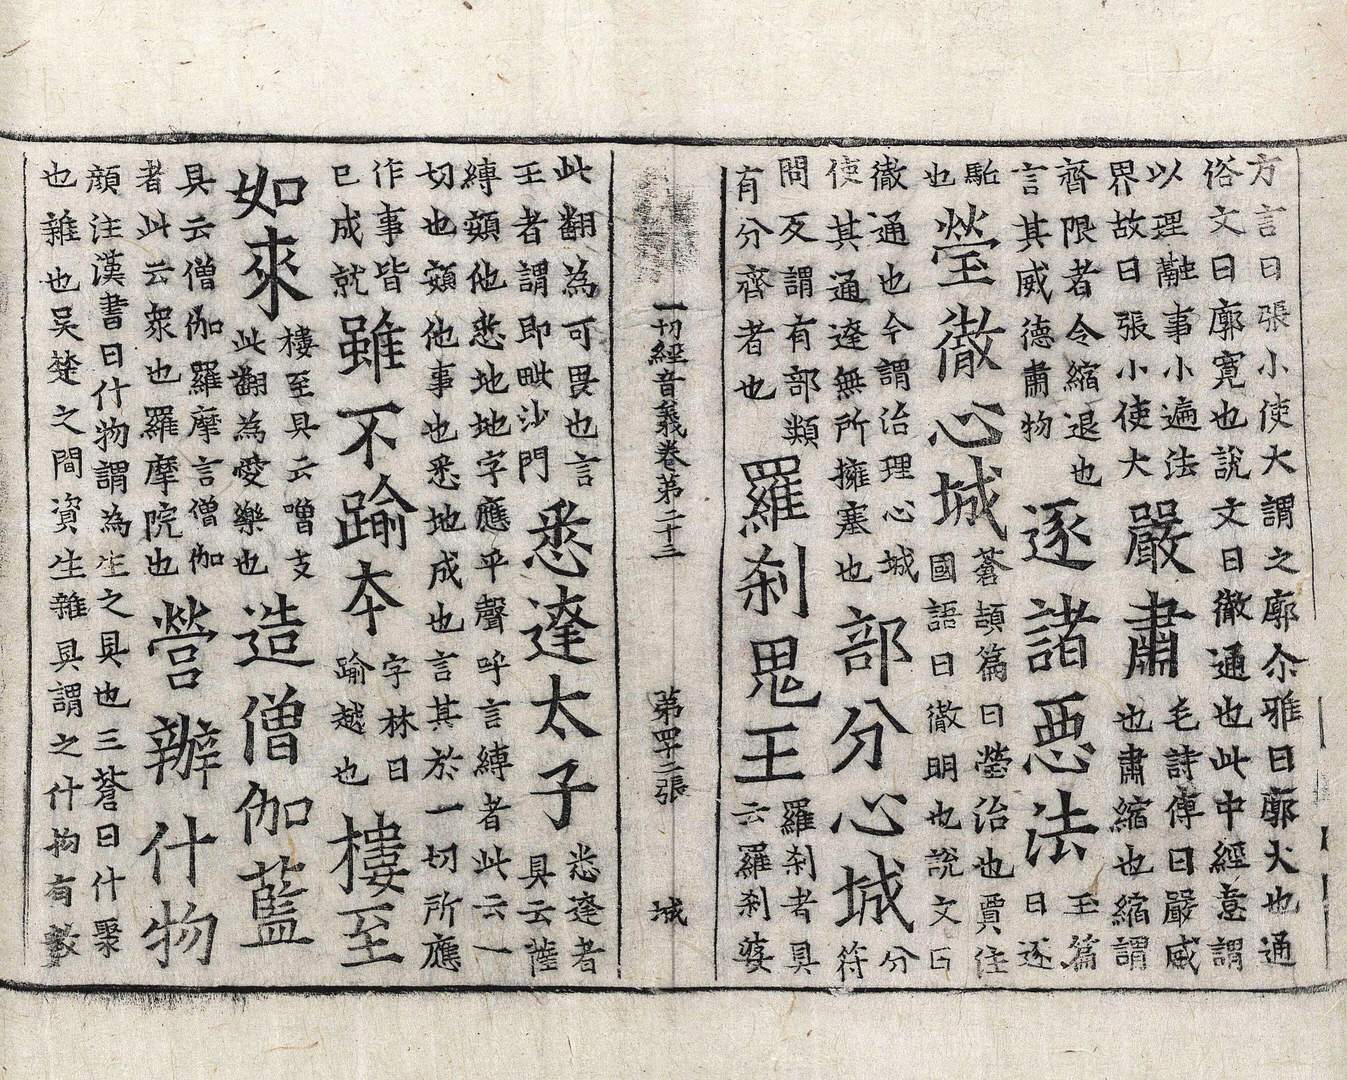 方言曰張小使大謂之廓尒雅曰廓大也通
俗文曰廓寬也說文曰徹通也此中經意謂
以理融事小遍法
界故曰張小使大
嚴肅
毛詩傳曰嚴威
也肅縮也縮謂
齊限者令縮退也
言其威德肅物
逐諸惡法
玉篇
曰逐
駈
也
瑩徹心城
蒼頡篇曰瑩治也賈注
國語曰徹明也說文曰
徹通也今謂治理心城
使其通達無所擁塞也
部分心城
分
符
問反謂有部類
有分齊者也
羅刹鬼王
羅刹者具
云羅刹婆
一切經音義卷第二十三 第四十二張 城
此翻為可畏也言
王者謂即毗沙門
悉達太子
悉達者
具云薩
縛頞他悉地地字應平聲呼言縛者此云一
切也頞他事也悉地成也言其於一切所應
作事皆
已成就
雖不踰本
字林曰
踰越也
樓至
如來
樓至具云嚕支
此翻為愛樂也
造僧伽藍
具云僧伽羅摩言僧伽
者此云衆也羅摩院也
營辦什物
顔注漢書曰什物謂為生之具也三蒼曰什聚
也雜也吳楚之間資生雜具謂之什物有數